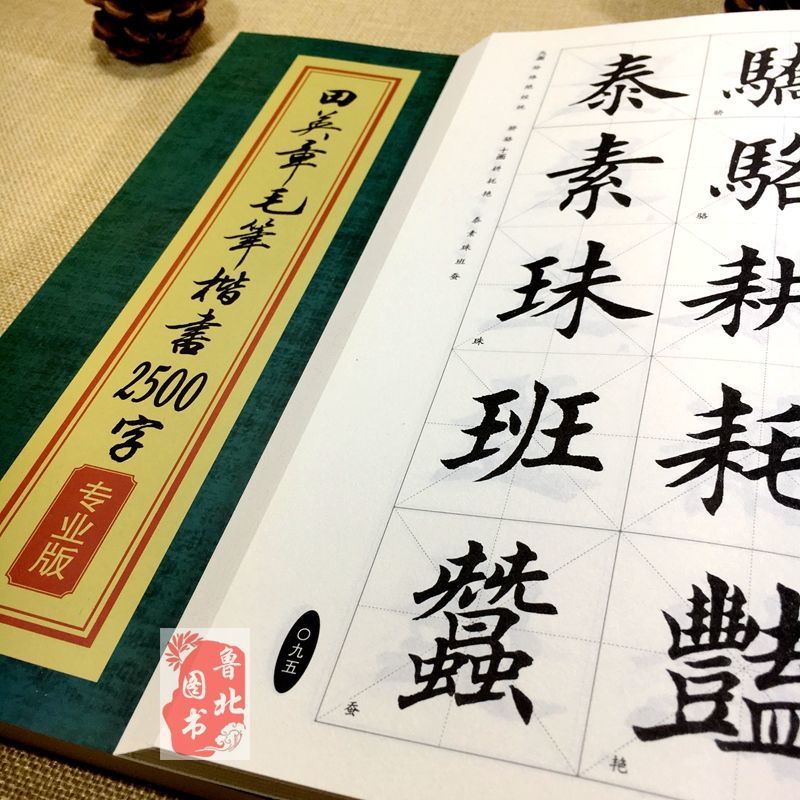 田英章毛筆楷書2500字
专业版
骄 骆 十画 耕 耗 艳 泰 素 珠 班 蚕
驕駱耕耗豓
骄
骆
艳
泰素珠班蠶
珠
蚕
〇九五
鲁北
图书